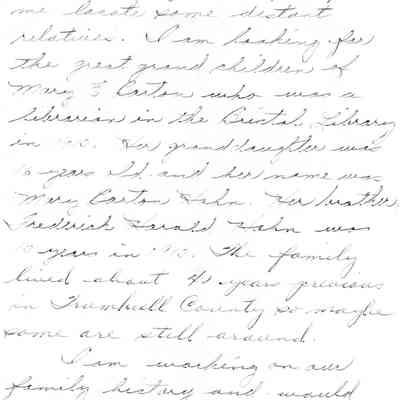 me locate some distant
relatives. I am looking for
the great grand children of
Mary E Carton who was a
librarian in the Bristol Library
in Her granddaughter was
years old and her name was
Mary Carton Hahn. Her brother,
Frederick Harold Hahn was
10 years in The family
lived about 40 years previous
in Trumbull County so maybe
some are still around.
I am working on our
family history and would